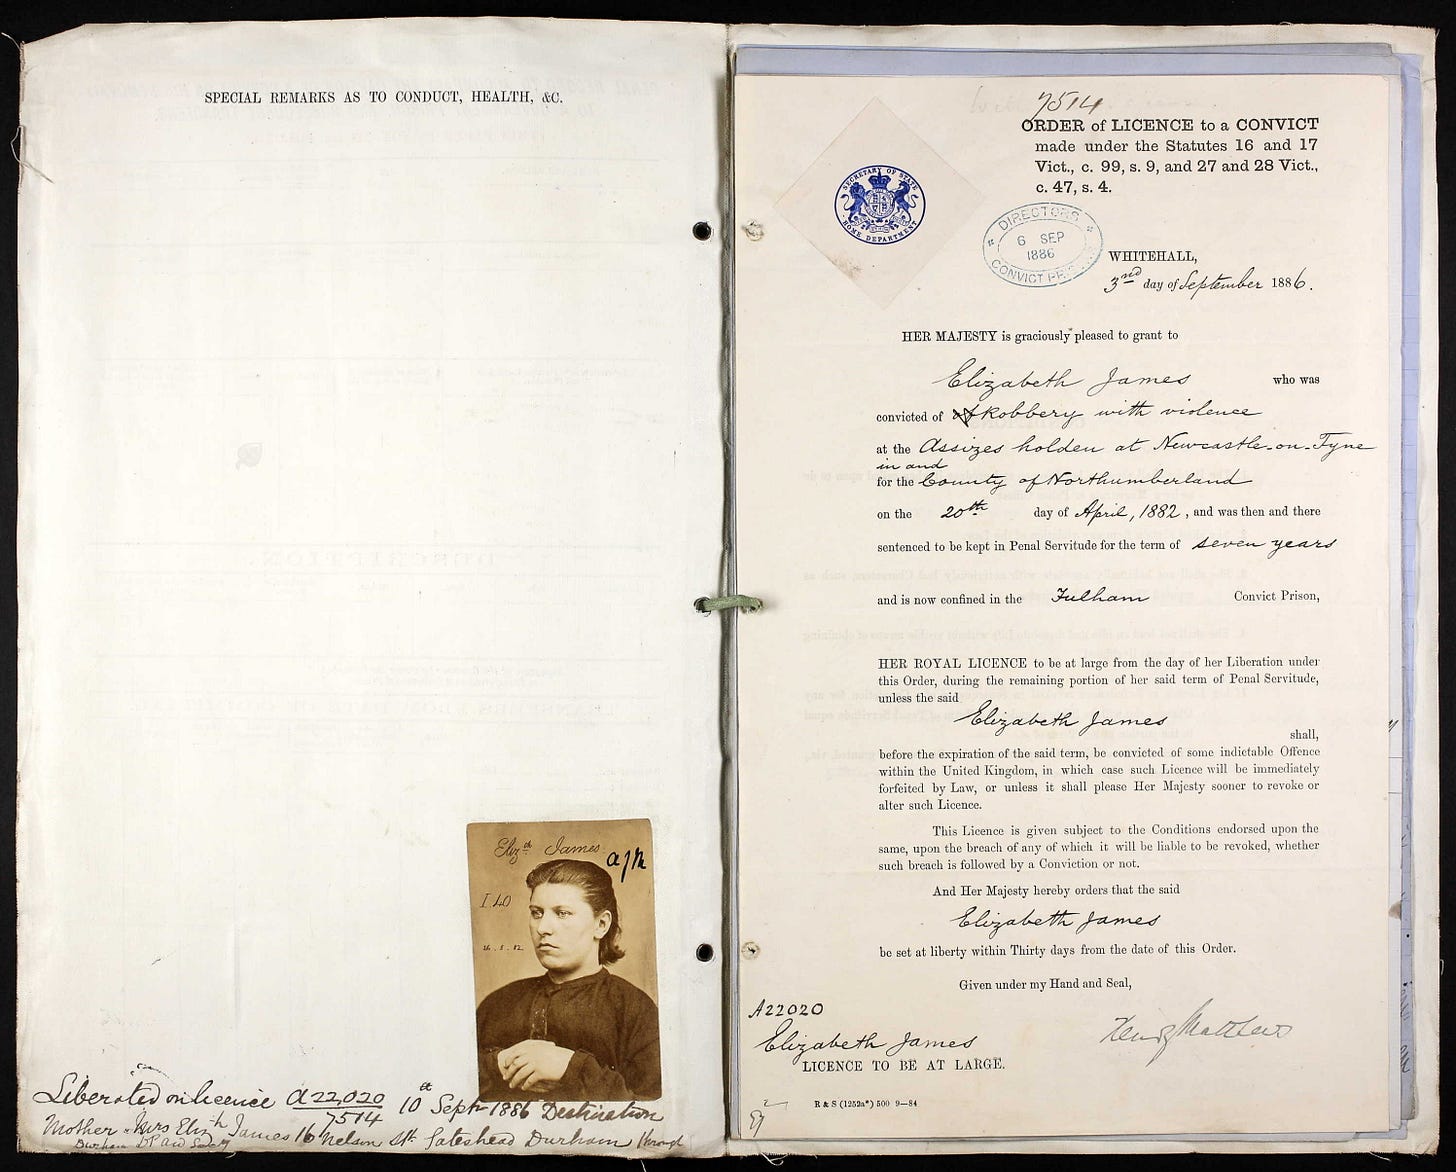 SPECIAL REMARKS AS TO CONDUCT, HEALTH, &C.
Eliz.th James
I 40
Liberated on licence A 22,020 10th Septr 1886 Destination
7514
Mother - Mrs Elizth James 16 Nelson St. Gateshead Durham through
Durham D P Aid Socy
7514
ORDER of LICENCE to a CONVICT
made under the Statutes 16 and 17
Vict., c. 99, s. 9, and 27 and 28 Vict.,
c. 47, s. 4.
SECRETARY OF STATE
HOME DEPARTMENT
DIRECTORS
6 SEP
1886
CONVICT
WHITEHALL,
3rd day of September 1886.
HER MAJESTY is graciously pleased to grant to
Elizabeth James who was
convicted of Robbery with violence
at the Assizes holden at Newcastle-on-Tyne
in and
for the County of Northumberland
on the 20th day of April, 1882, and was then and there
sentenced to be kept in Penal Servitude for the term of seven years
and is now confined in the Fulham Convict Prison,
HER ROYAL LICENCE to be at large from the day of her Liberation under
this Order, during the remaining portion of her said term of Penal Servitude,
unless the said
Elizabeth James
shall,
before the expiration of the said term, be convicted of some indictable Offence
within the United Kingdom, in which case such Licence will be immediately
forfeited by Law, or unless it shall please Her Majesty sooner to revoke or
alter such Licence.
This Licence is given subject to the Conditions endorsed upon the
same, upon the breach of any of which it will be liable to be revoked, whether
such breach is followed by a Conviction or not.
And Her Majesty hereby orders that the said
Elizabeth James
be set at liberty within Thirty days from the date of this Order.
Given under my Hand and Seal,
A22020
Henry Matthews
Elizabeth James
LICENCE TO BE AT LARGE.
R & S (1252a*) 500 9—84